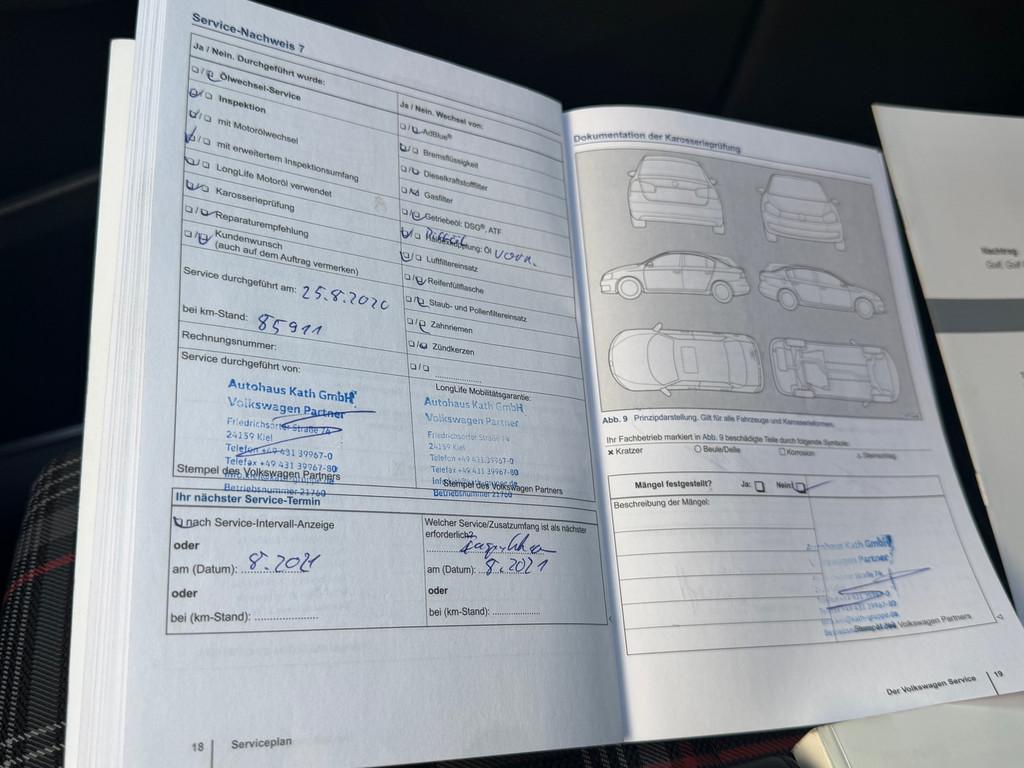 Service-Nachweis 7
Ja / Nein. Durchgeführt wurde:
Ölwechsel-Service
Inspektion
mit Motorölwechsel
mit erweitertem Inspektionsumfang
LongLife Motoröl verwendet
Karosserieprüfung
Reparaturempfehlung
Kundenwunsch
(auch auf dem Auftrag vermerken)
Service durchgeführt am: 25.8.2020
bei km-Stand: 85911
Rechnungsnummer:
Service durchgeführt von:
Autohaus Kath GmbH
Volkswagen Partner
Friedrichsorter Straße 74
24159 Kiel
Telefon +49 431 39967-0
Telefax +49 431 39967-80
Stempel des Volkswagen Partners
Betriebsnummer 21760
Ja / Nein. Wechsel von:
AdBlue®
Bremsflüssigkeit
Dieselkraftstofffilter
Gasfilter
Getriebeöl: DSG®, ATF
Haldexkupplung: Öl vorn.
Luftfiltereinsatz
Reifenfüllflasche
Staub- und Pollenfiltereinsatz
Zahnriemen
Zündkerzen
LongLife Mobilitätsgarantie:
Autohaus Kath GmbH
Volkswagen Partner
Friedrichsorter Straße 74
24159 Kiel
Telefon +49 431 39967-0
Telefax +49 431 39967-80
Stempel des Volkswagen Partners
Betriebsnummer 21760
Ihr nächster Service-Termin
nach Service-Intervall-Anzeige
oder
am (Datum): 8.2021
oder
bei (km-Stand):
Welcher Service/Zusatzumfang ist als nächster
erforderlich?
am (Datum): 8.2021
oder
bei (km-Stand):
18 Serviceplan
Dokumentation der Karosserieprüfung
Abb. 9 Prinzipdarstellung. Gilt für alle Fahrzeuge und Karosserieformen.
Ihr Fachbetrieb markiert in Abb. 9 beschädigte Teile durch folgende Symbole:
x Kratzer
Beule/Delle
Korrosion
Steinschlag
Mängel festgestellt? Ja: Nein:
Beschreibung der Mängel:
Kath GmbH
Partner
Stempel des Volkswagen Partners
Der Volkswagen Service 19
Nachtrag
Golf, Golf